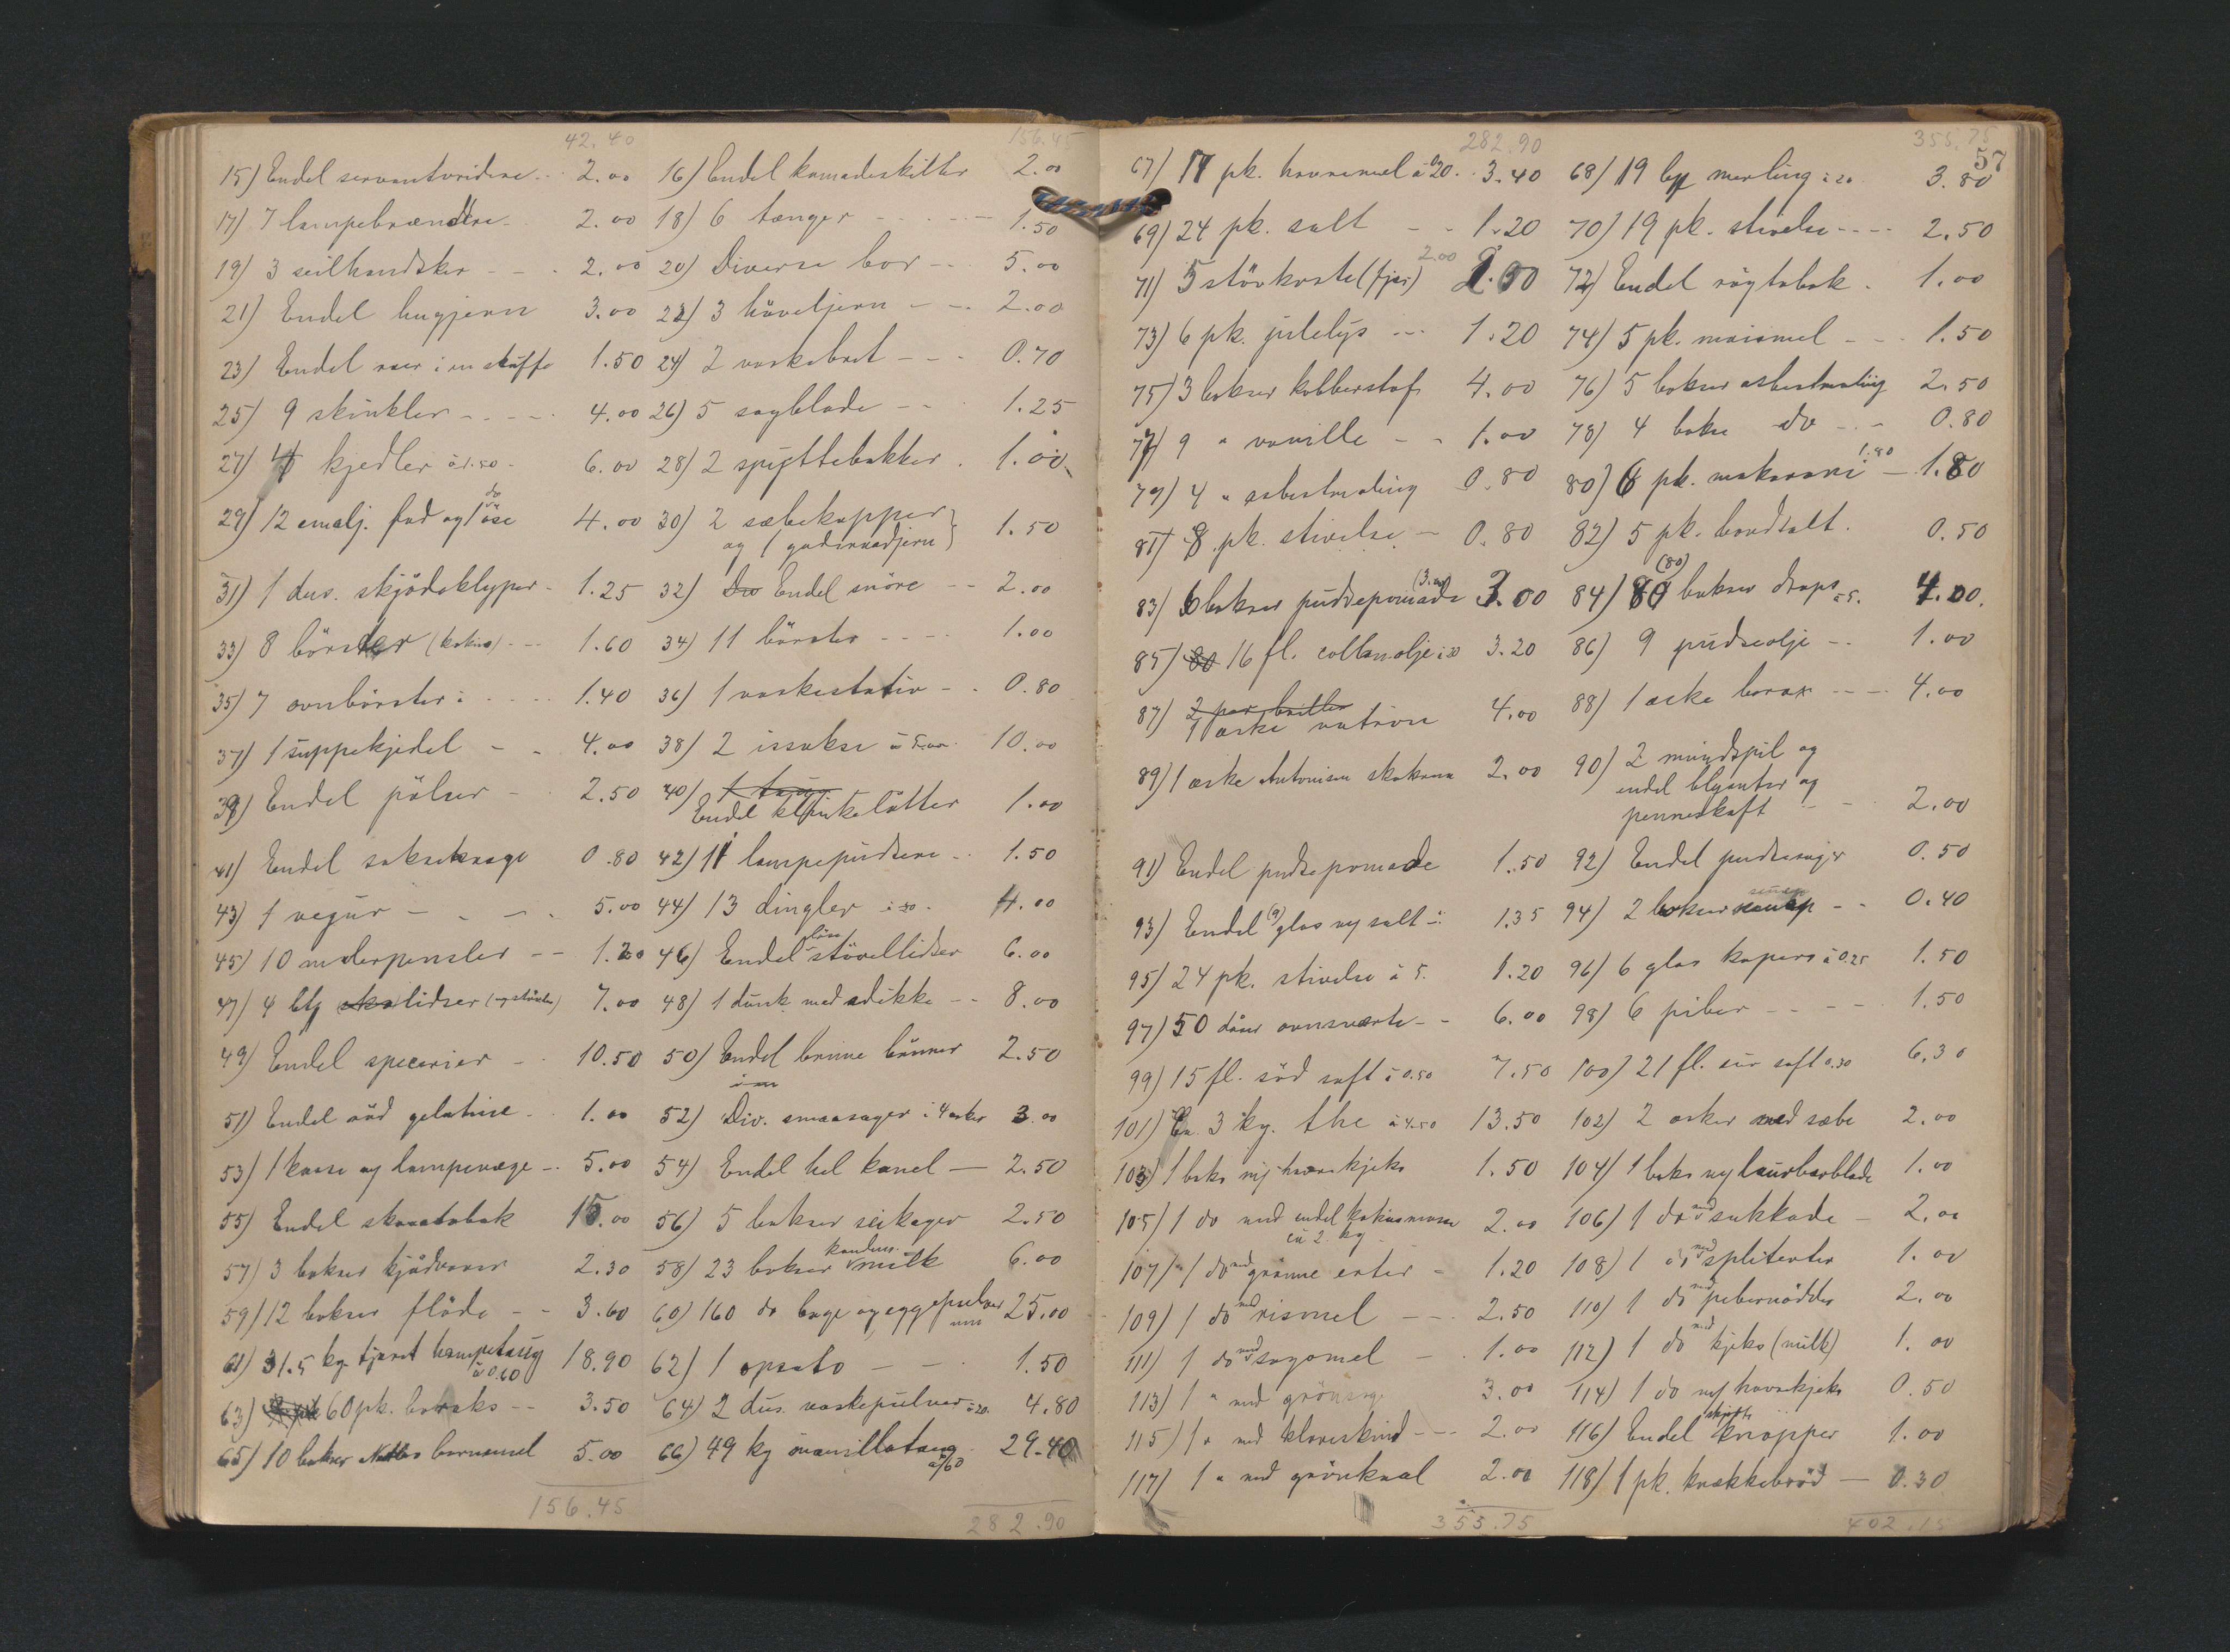 42.40 156.45
15) Endel servantvridere 2.00 16) Endel komodeskilter 2.00
17) 7 lampebrændere 2.00 18) 6 tænger 1.50
19) 3 seilhandsker 2.00 20) Diverse bor 5.00
21) Endel hugjern 3.00 22) 3 høveljern 2.00
23) Endel roer i en skuffe 1.50 24) 2 vaskebret 0.70
25) 9 skinkler 4.00 26) 5 sagblade 1.25
27) 4 kjedler à 1.50 6.00 28) 2 spyttebakker 1.00
29) 12 emalj. fad og 1 do øse 4.00 30) 2 sæbekopper
og 1 1.50
31) 1 dus. skjødeklyper 1.25 32) Endel snöre 2.00
33) 8 börster (kokus) 1.60 34) 11 börster 1.00
35) 7 ovnbörster 1.40 36) 1 vaskestativ 0.80
37) 1 suppekjedel 4.00 38) 2 issakse à 5.00 10.00
39) Endel pölser 2.50 40)
Endel klinkelåtter 1.00
41) Endel 0.80 42) 11 lampepudsere 1.50
43) 1 vegur 5.00 44) 13 dingler à 30 4.00
45) 10 malerpensler 1.20 46) Endel löse stövellidser 6.00
47) 4 lidser 7.00 48) 1 dunk med sdikke 8.00
49) Endel specerier 10.50 50) Endel brune bönner 2.50
51) Endel röd gelatine 1.00 52) Div. smaasager i 4 esker 3.00
53) 1 kasse ny lampevæge 5.00 54) Endel hel kanel 2.50
55) Endel skraatobak 15.00 56) 5 bokser seikager 2.50
57) 3 bokser kjödvarer 2.30 58) 23 bokser kondens. milk 6.00
59) 12 bokser flöde 3.60 60) 160 do bage og eggepulver 25.00
61) 31.5 kg tjæret hampetaug à 0.60 18.90 62) 1 opsats 1.50
63) 60 pk. boraks 3.50 64) 2 dus. vaskepulver à 20. 4.80
65) 10 bokser Nestles barnemel 5.00 66) 49 kg manillataug à 60 29.40
156.45 282.90
282.90 355.75
57
67) 17 pk. havremel à 20. 3.40 68) 19 merling à 20 3.80
69) 24 pk. salt 1.20 70) 19 pk. stivelse 2.50
2.00
71) 5 stövkoste (fjær) 72) Endel røgtobak 1.00
73) 6 pk. julelys 1.20 74) 5 pk. maismel 1.50
75) 3 bokser kobberstof 4.00 76) 5 bokser asbestmaling 2.50
77) 9 " vanille 1.00 78) 4 boks do 0.80
79) 4 " asbestmaling 0.80 80) 6 pk. makaroni 1.80 1.80
81) 8 pk. stivelse 0.80 82) 5 pk. bordsalt 0.50
83) 6 bokser pudsepomade (3.00) 3.00 84) 80 (80) bokser drops à 5. 4.00
85) 16 fl. salatolje à 20 3.20 86) 9 pudseolje 1.00
87) 2 par briller
1 æske natron 4.00 88) 1 æske borax 4.00
89) 1 æske Antonisen skokrem 2.00 90) 2 mundspil og
endel blyanter og
penneskaft 2.00
91) Endel pudsepomade 1.50 92) Endel pudsesager 0.50
93) Endel (9) glas ny salt 1.35 94) 2 bokser senep 0.40
95) 24 pk. stivelse à 5. 1.20 96) 6 glas kapers à 0.25 1.50
97) 50 dåser ovnsværte 6.00 98) 6 piber 1.50
99) 15 fl. söd saft à 0.50 7.50 100) 21 fl. sur saft 0.30 6.30
101) Ca. 3 kg. the à 4.50 13.50 102) 2 æsker med sæbe 2.00
103) 1 boks ny havrekjeks 1.50 104) 1 boks ny laurbærblade 1.00
105) 1 do med endel kokusmasse 2.00 106) 1 do med sukkade 2.00
ca 2 kg
107) 1 do med grönne erter 1.20 108) 1 do med spliterter 1.00
109) 1 do med rismel 2.50 110) 1 do med pebernödder 2.00
111) 1 do med sagomel 1.00 112) 1 do med kjeks (milk) 1.00
113) 1 " med grönsag 3.00 114) 1 do ny havrekjeks 0.50
115) 1 " med klareskind 2.00 116) Endel skjorte knapper 1.00
117) 1 " med grönkaal 2.00 118) 1 pk. knækkebröd 0.30
355.75 402.15